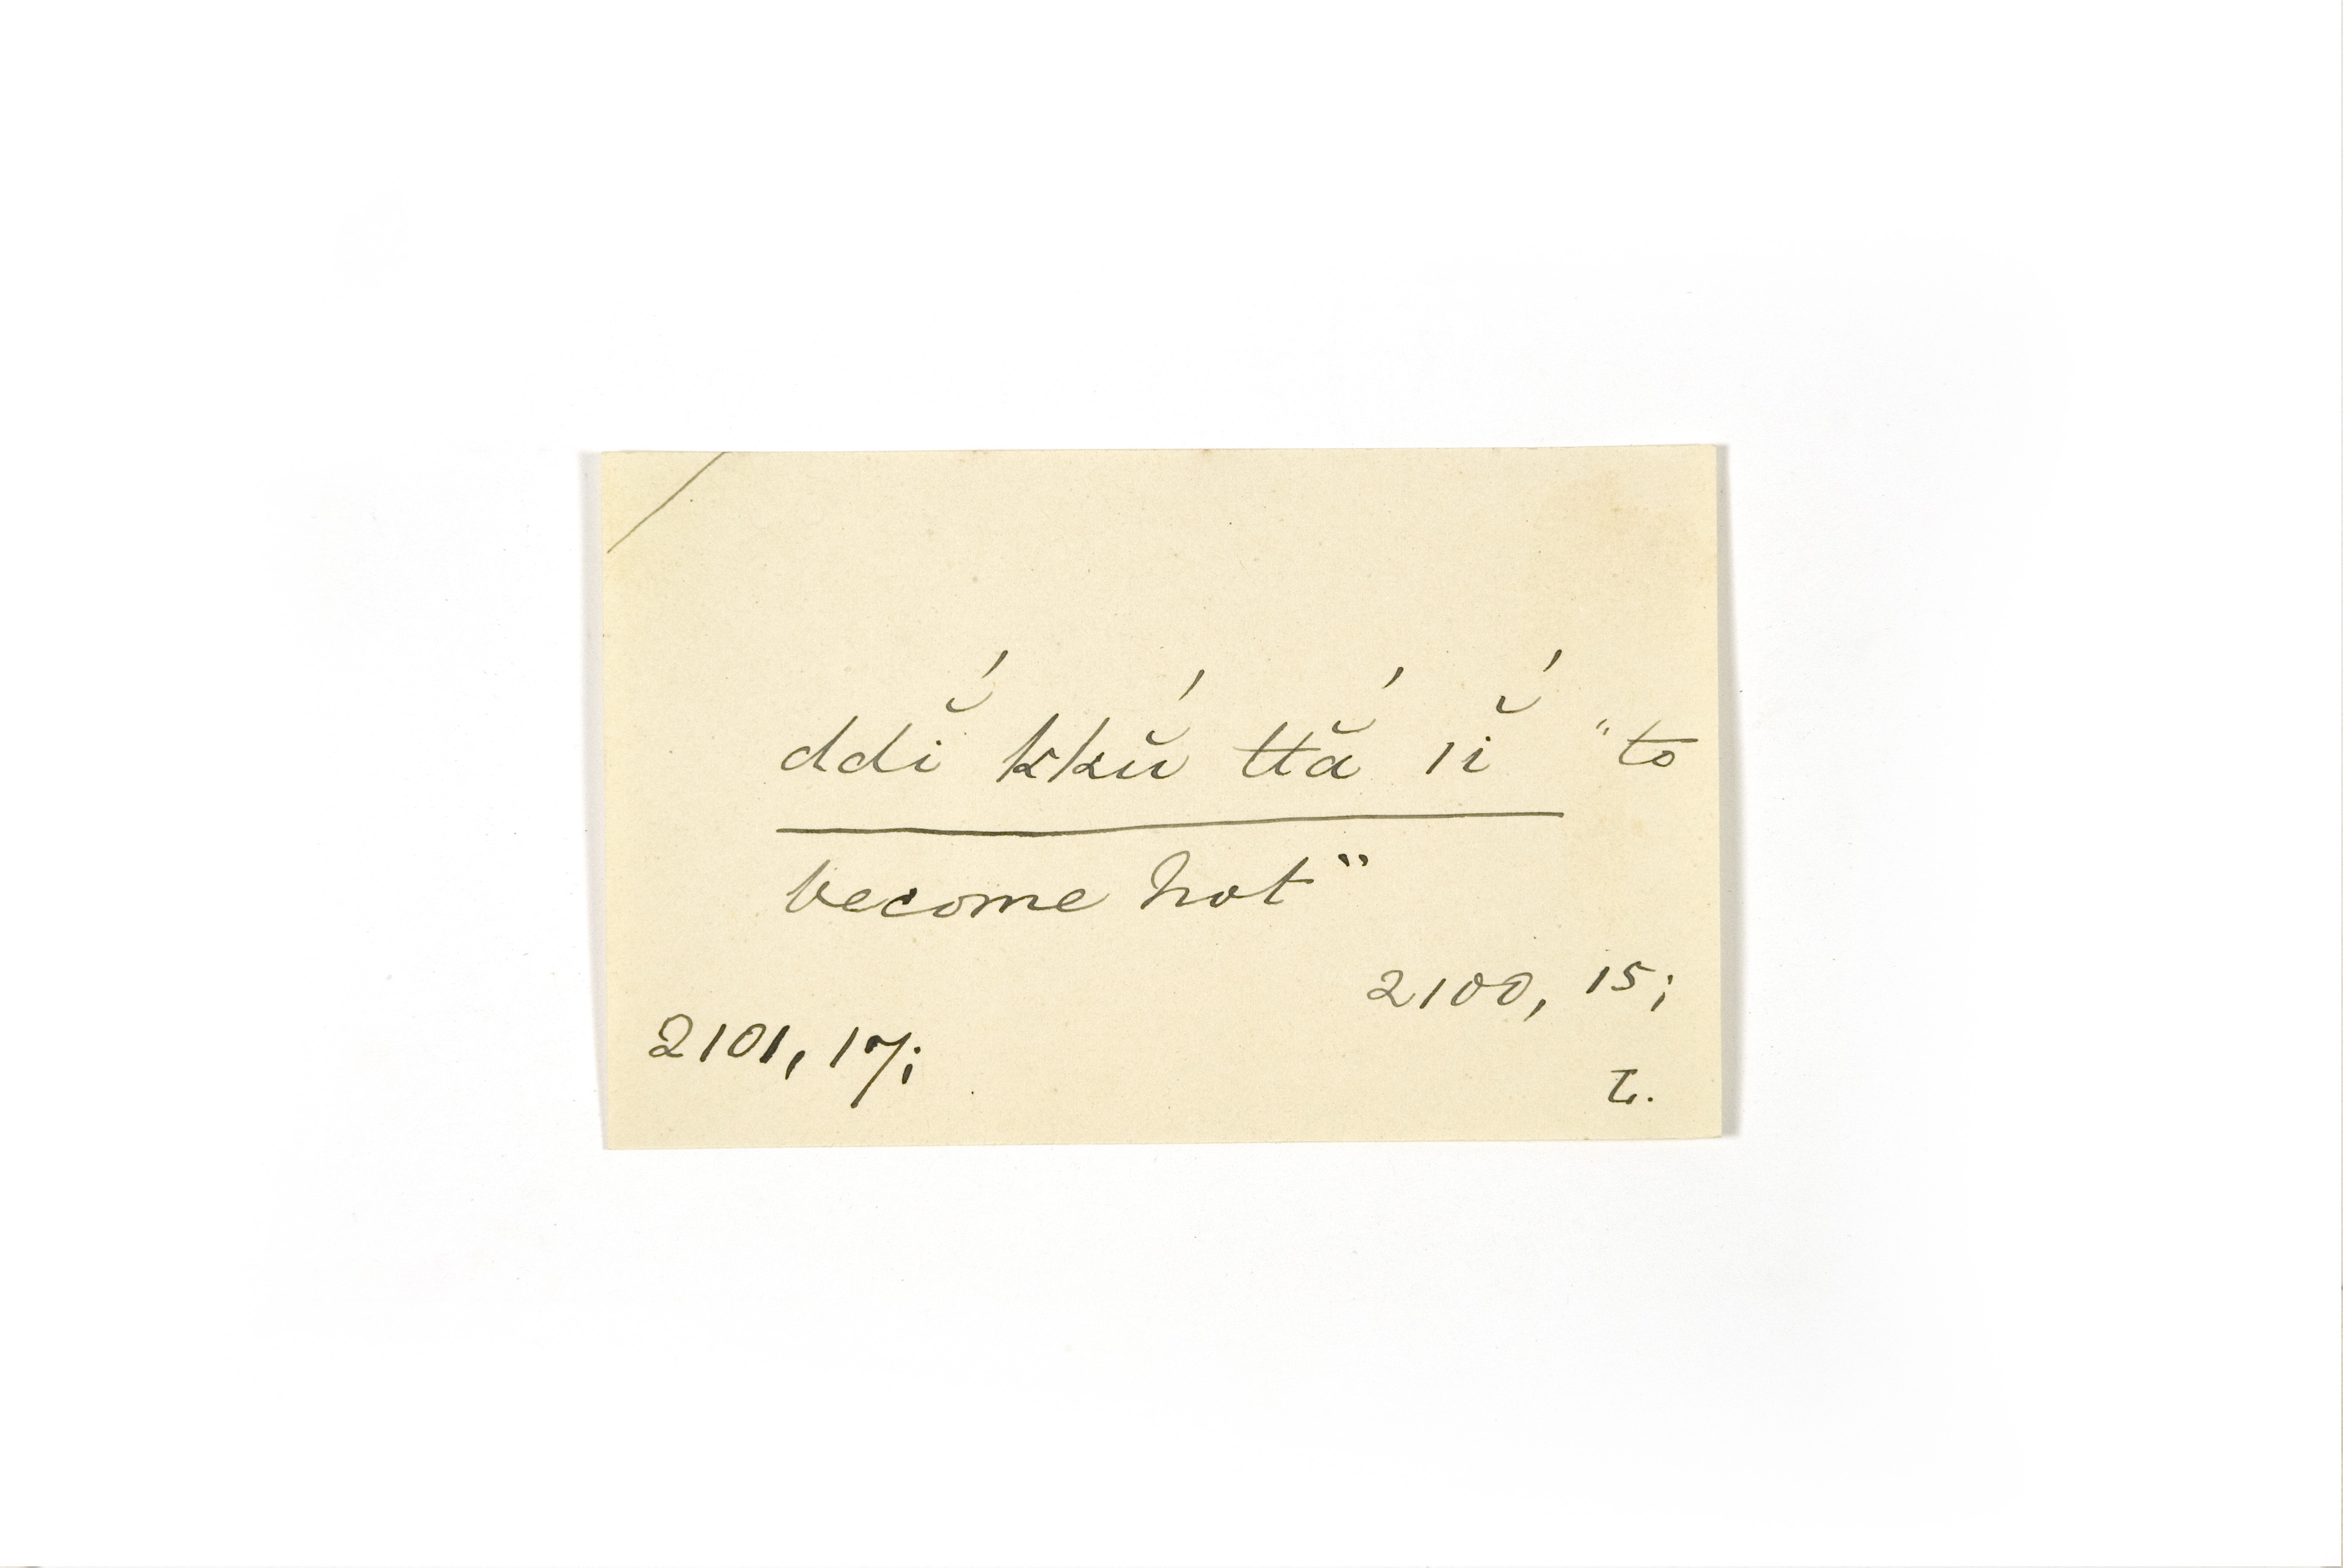 ddĭ́ kkŭ́ ttắ ıĭ́ "to
become hot"
2100, 15;
2101, 17;